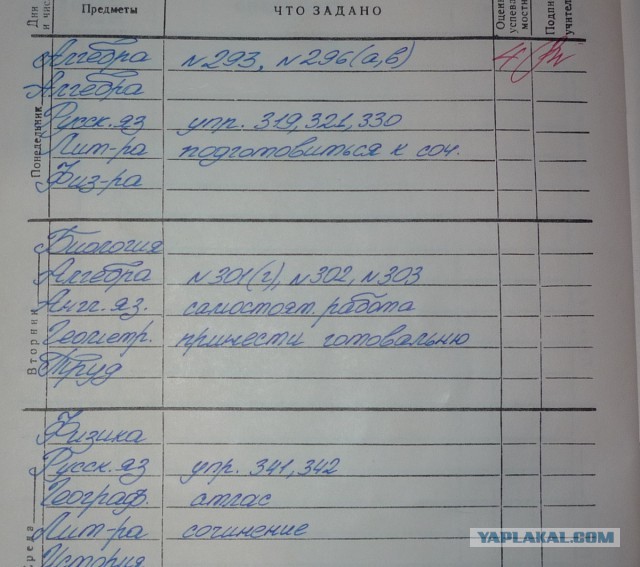 Дни и чис
Предметы
ЧТО ЗАДАНО
Оцени успева мости
Подпи учител
Понедельник
Алгебра №293, №296(а,в) 4
Алгебра
Русск. яз упр. 319,321,330
Лит-ра подготовиться к соч.
Физ-ра
Вторник
Биология
Алгебра №301(г), №302, №303
Англ. яз. самостоят. работа
Геометр. принести готовальню
Труд
Среда
Физика
Русск. яз упр. 341,342
Географ. атлас
Лит-ра сочинение
История
YAPLAKAL.COM